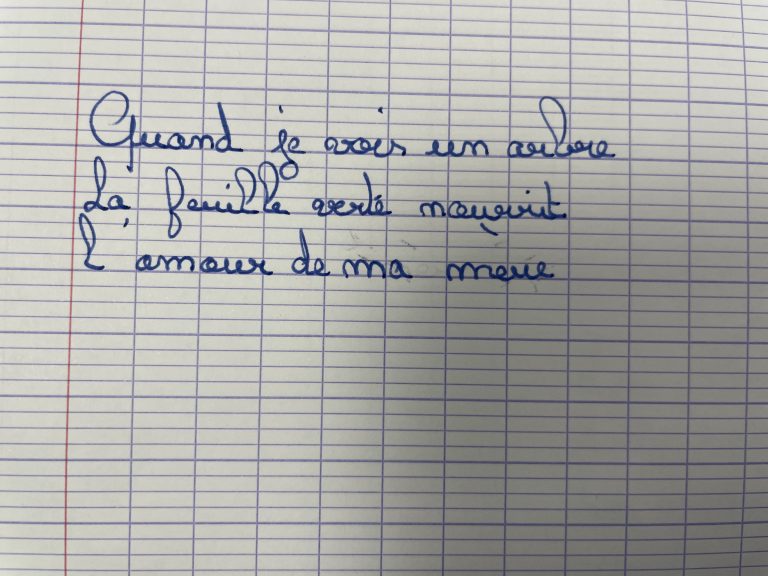 Quand je vois un arbre
La feuille verte nourrit
L'amour de ma mere